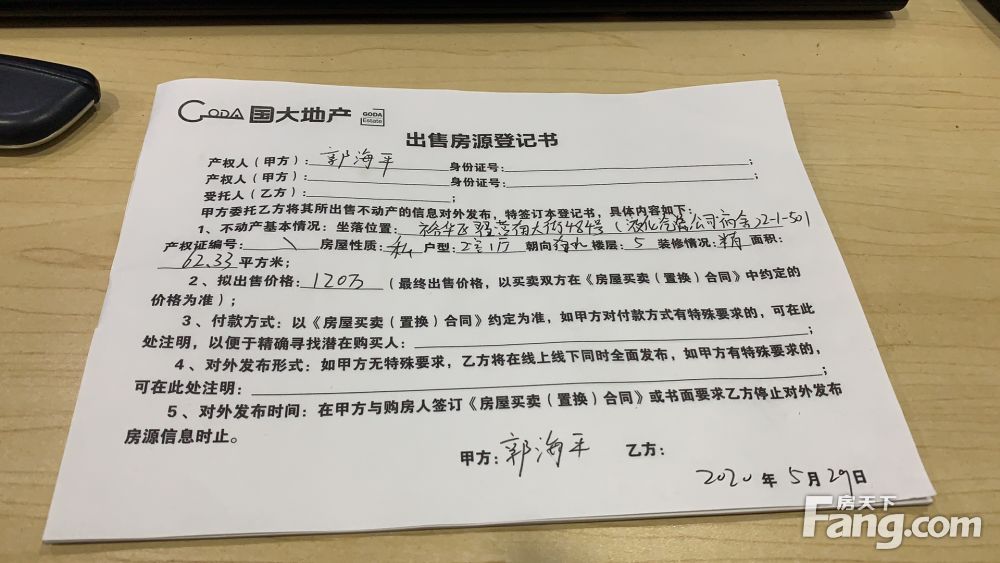 GODA 国大地产 GODA Estate
出售房源登记书
产权人（甲方）：郭海平 身份证号：；
产权人（甲方）：身份证号：；
受托人（乙方）：；
甲方委托乙方将其所出售不动产的信息对外发布，特签订本登记书，具体内容如下：
1、不动产基本情况：坐落位置：裕华区 大街48号（ 公司宿舍）22-1-501
产权证编号：\ 房屋性质：私 户型：2室1厅 朝向 楼层：5 装修情况：精 面积：
62.33 平方米；
2、拟出售价格：120万（最终出售价格，以买卖双方在《房屋买卖（置换）合同》中约定的
价格为准）；
3、付款方式：以《房屋买卖（置换）合同》约定为准，如甲方对付款方式有特殊要求的，可在此
处注明，以便于精确寻找潜在购买人：；
4、对外发布形式：如甲方无特殊要求，乙方将在线上线下同时全面发布，如甲方有特殊要求的，
可在此处注明：；
5、对外发布时间：在甲方与购房人签订《房屋买卖（置换）合同》或书面要求乙方停止对外发布
房源信息时止。
甲方：郭海平 乙方：
2020年5月29日
房天下
Fang.com